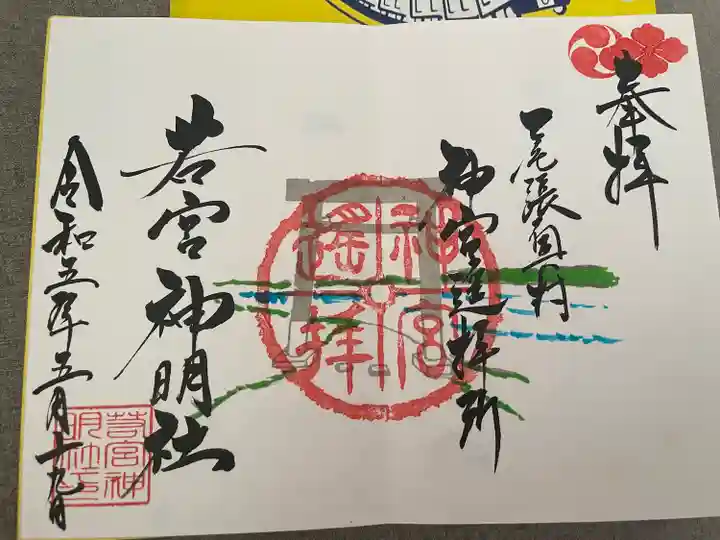 奉拝
尾張
神宮遥拝所
神宮
遥拝
若宮神明社
令和五年五月十九日
若宮神
明社印